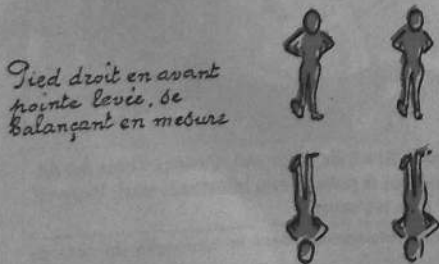 Pied droit en avant
pointe levée, se
Balançant en mesure